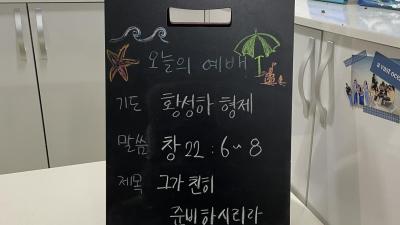 오늘의 예배
기도 황성하 형제
말씀 창 22 : 6~8
제목 그가 친히
준비하시리라
a vast oce